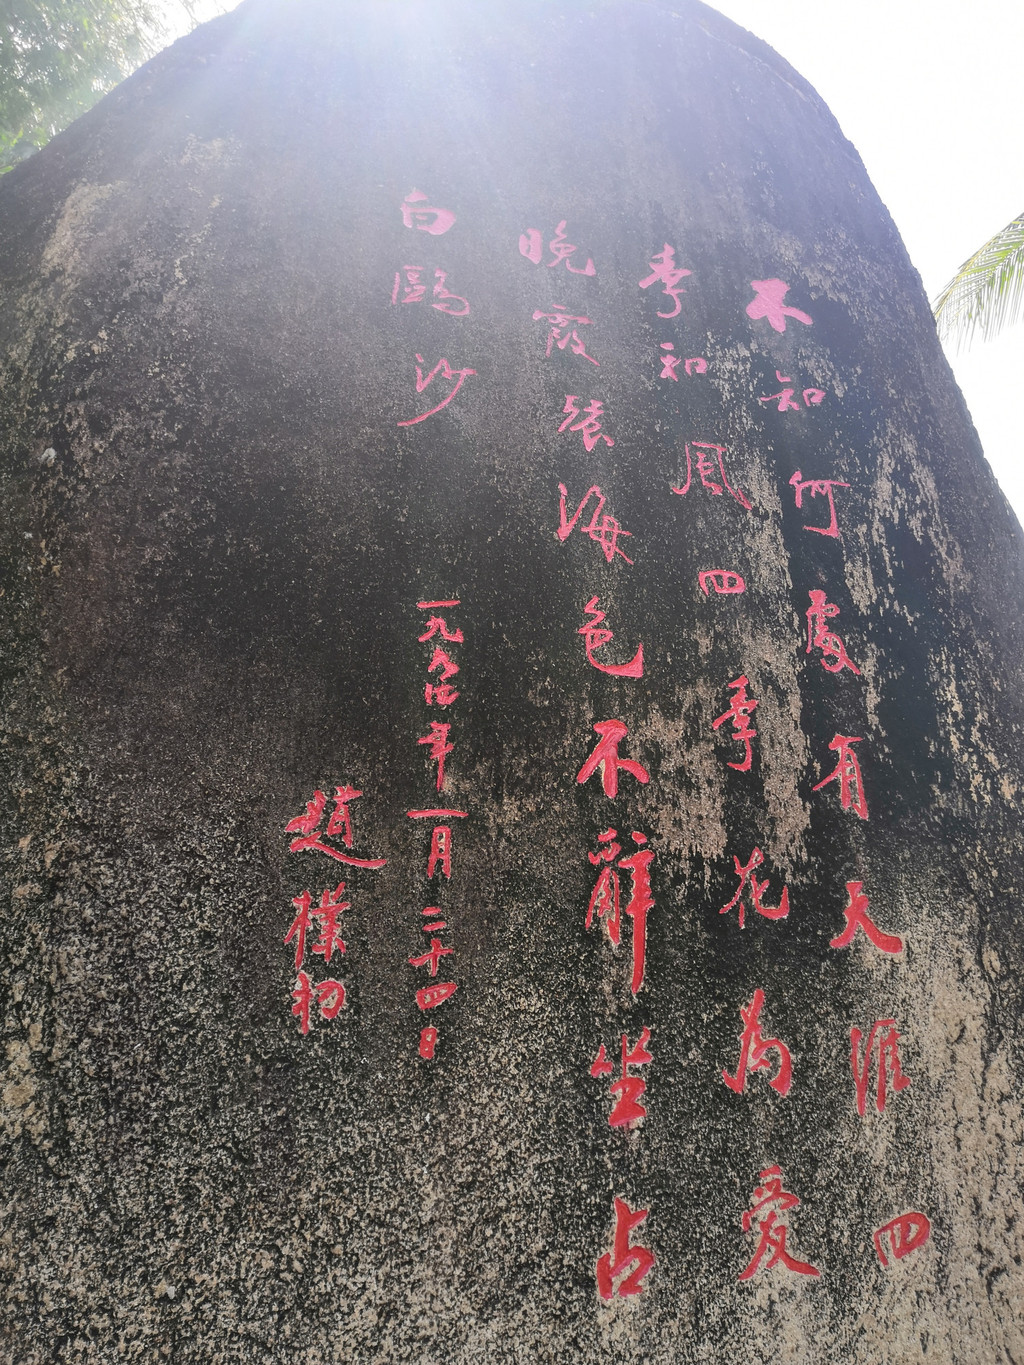 不知何處有天涯四
季和風四季花為愛
晚霞餐海色不辭坐占
白鷗沙
一九九四年一月二十四日
趙樸初